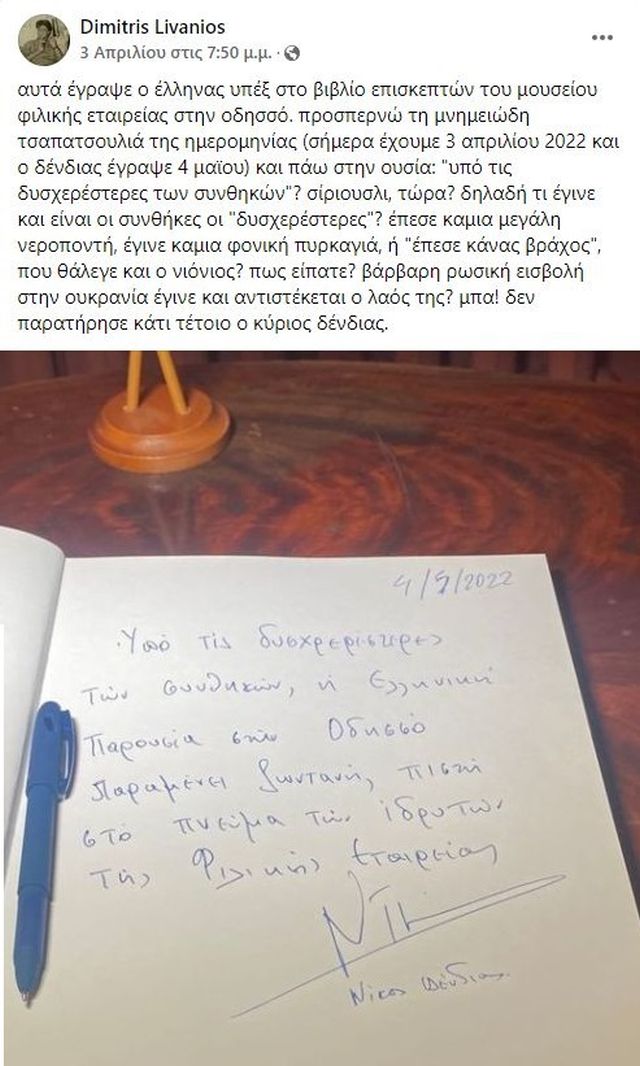 Dimitris Livanios
3 Απριλίου στις 7:50 μ.μ.
αυτά έγραψε ο έλληνας υπέξ στο βιβλίο επισκεπτών του μουσείου
φιλικής εταιρείας στην οδησσό. προσπερνώ τη μνημειώδη
τσαπατσουλιά της ημερομηνίας (σήμερα έχουμε 3 απριλίου 2022 και
ο δένδιας έγραψε 4 μαϊου) και πάω στην ουσία: "υπό τις
δυσχερέστερες των συνθηκών"? σίριουσλι, τώρα? δηλαδή τι έγινε
και είναι οι συνθήκες οι "δυσχερέστερες"? έπεσε καμια μεγάλη
νεροποντή, έγινε καμια φονική πυρκαγιά, ή "έπεσε κάνας βράχος",
που θάλεγε και ο νιόνιος? πως είπατε? βάρβαρη ρωσική εισβολή
στην ουκρανία έγινε και αντιστέκεται ο λαός της? μπα! δεν
παρατήρησε κάτι τέτοιο ο κύριος δένδιας.
4/5/2022
Υπό τις δυσχρερέστερες
τών συνθηκών, η Ελληνική
Παρουσία στην Οδησσό
παραμένει ζωντανή, πιστή
στό πνεύμα τών ιδρυτών
της Φιλικής Εταιρείας
Νίκος Δένδιας